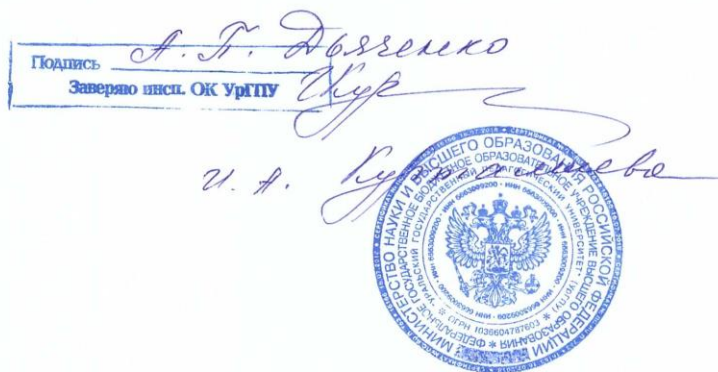 Подпись А. П. Дьяченко
Заверяю инсп. ОК УрГПУ
И. А.
МИНИСТЕРСТВО НАУКИ И ВЫСШЕГО ОБРАЗОВАНИЯ РОССИЙСКОЙ ФЕДЕРАЦИИ
ФЕДЕРАЛЬНОЕ ГОСУДАРСТВЕННОЕ БЮДЖЕТНОЕ ОБРАЗОВАТЕЛЬНОЕ УЧРЕЖДЕНИЕ ВЫСШЕГО ОБРАЗОВАНИЯ
"УРАЛЬСКИЙ ГОСУДАРСТВЕННЫЙ ПЕДАГОГИЧЕСКИЙ УНИВЕРСИТЕТ" (УрГПУ)
ОГРН 1036604787603